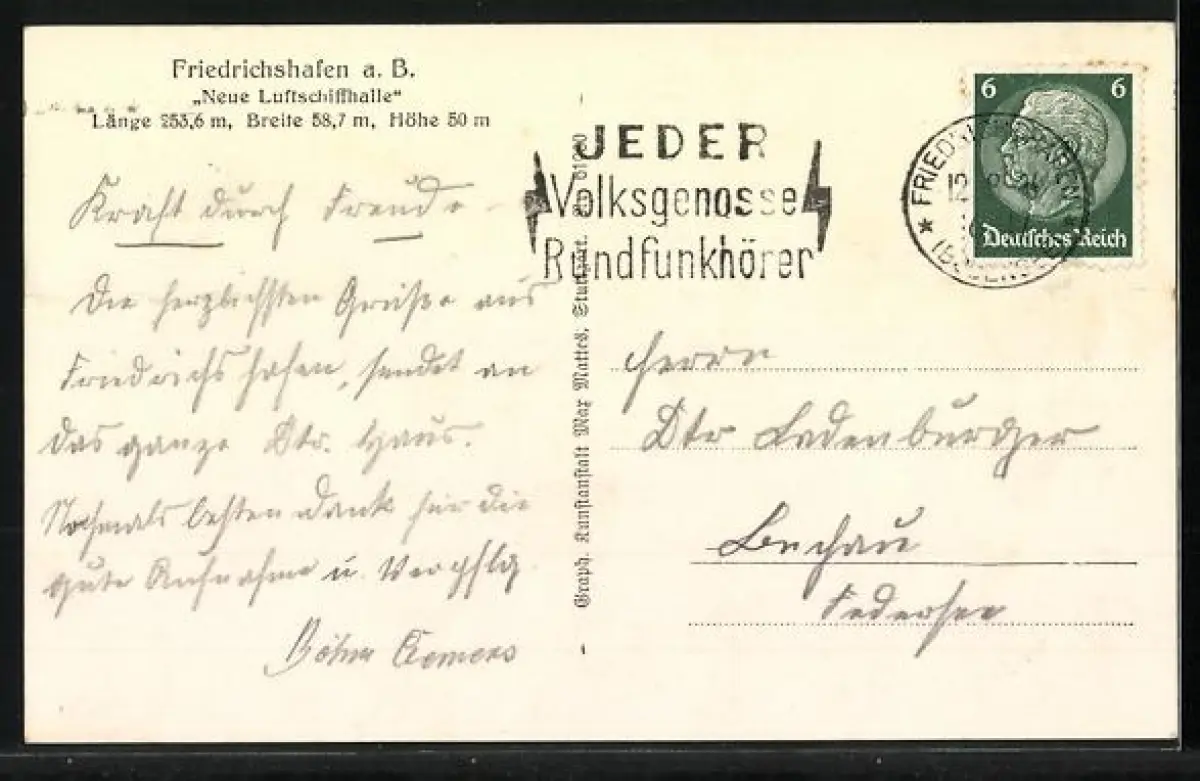 Friedrichshafen a. B.
„Neue Luftschiffhalle“
Länge 253,6 m, Breite 58,7 m, Höhe 50 m
Kraft durch Freude
Die herzlichsten Grüße aus
Friedrichshafen, sendet an
das ganze Dtr. Haus.
Nochmals besten Dank für die
gute Aufnahme u. Verpflg.
Böhm Clemens
Graph. Kunstanstalt Max Mattes, Stuttgart.
JEDER
Volksgenosse
Rundfunkhörer
6 6
Deutsches Reich
FRIEDRICHSHAFEN
Herrn
Dtr Ladenburger
Buchau
Federsee